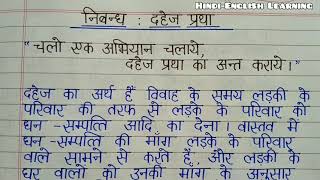 HINDI-ENGLISH LEARNING
निबन्ध : दहेज प्रथा
"चलो एक अभियान चलाये,
दहेज प्रथा का अन्त कराये।"
दहेज का अर्थ हैं विवाह के समय लड़की के
परिवार की तरफ से लड़के के परिवार को
धन -सम्पत्ति आदि का देना। वास्तव में
धन -सम्पत्ति की माँग लड़के के परिवार
वाले सामने से करते हैं, और लड़की के
घर वालो को उनकी माँग के अनुसार